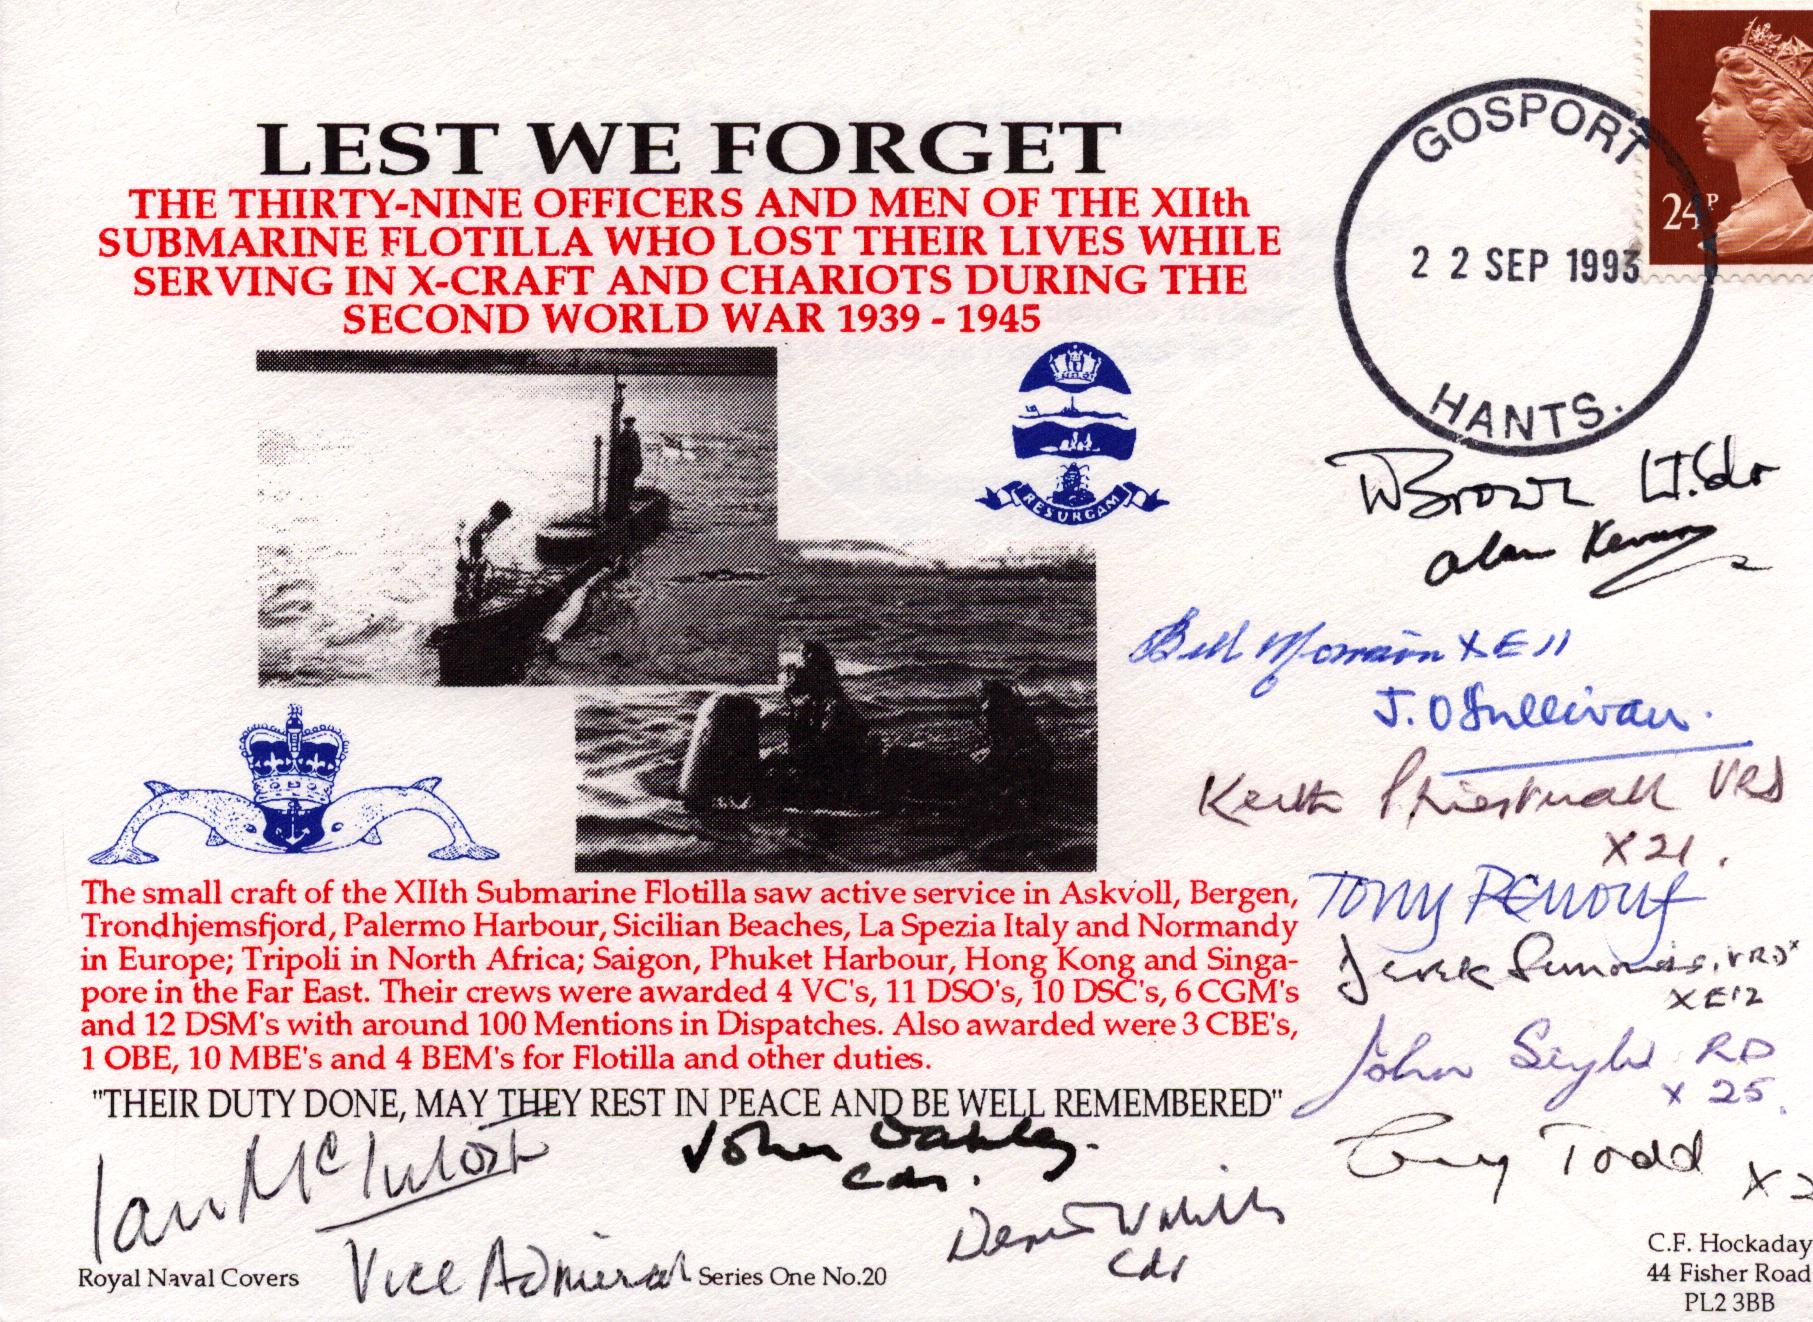 LEST WE FORGET
THE THIRTY-NINE OFFICERS AND MEN OF THE XIIth
SUBMARINE FLOTILLA WHO LOST THEIR LIVES WHILE
SERVING IN X-CRAFT AND CHARIOTS DURING THE
SECOND WORLD WAR 1939 - 1945
24P
GOSPORT
22 SEP 1993
HANTS.
RESURGAM
W Brown Lt.Cdr
Alan
Bill Morrison XE11
J. O'Sullivan.
Keith VRD
X21.
TONY RENOUF
Derek VRD*
XE12
John RD
X 25.
Todd
The small craft of the XIIth Submarine Flotilla saw active service in Askvoll, Bergen,
Trondhjemsfjord, Palermo Harbour, Sicilian Beaches, La Spezia Italy and Normandy
in Europe; Tripoli in North Africa; Saigon, Phuket Harbour, Hong Kong and Singa-
pore in the Far East. Their crews were awarded 4 VC's, 11 DSO's, 10 DSC's, 6 CGM's
and 12 DSM's with around 100 Mentions in Dispatches. Also awarded were 3 CBE's,
1 OBE, 10 MBE's and 4 BEM's for Flotilla and other duties.
"THEIR DUTY DONE, MAY THEY REST IN PEACE AND BE WELL REMEMBERED"
Ian McIntosh
Vice Admiral
John
Cdr.
Cdr
Royal Naval Covers
Series One No.20
C.F. Hockaday
44 Fisher Road
PL2 3BB